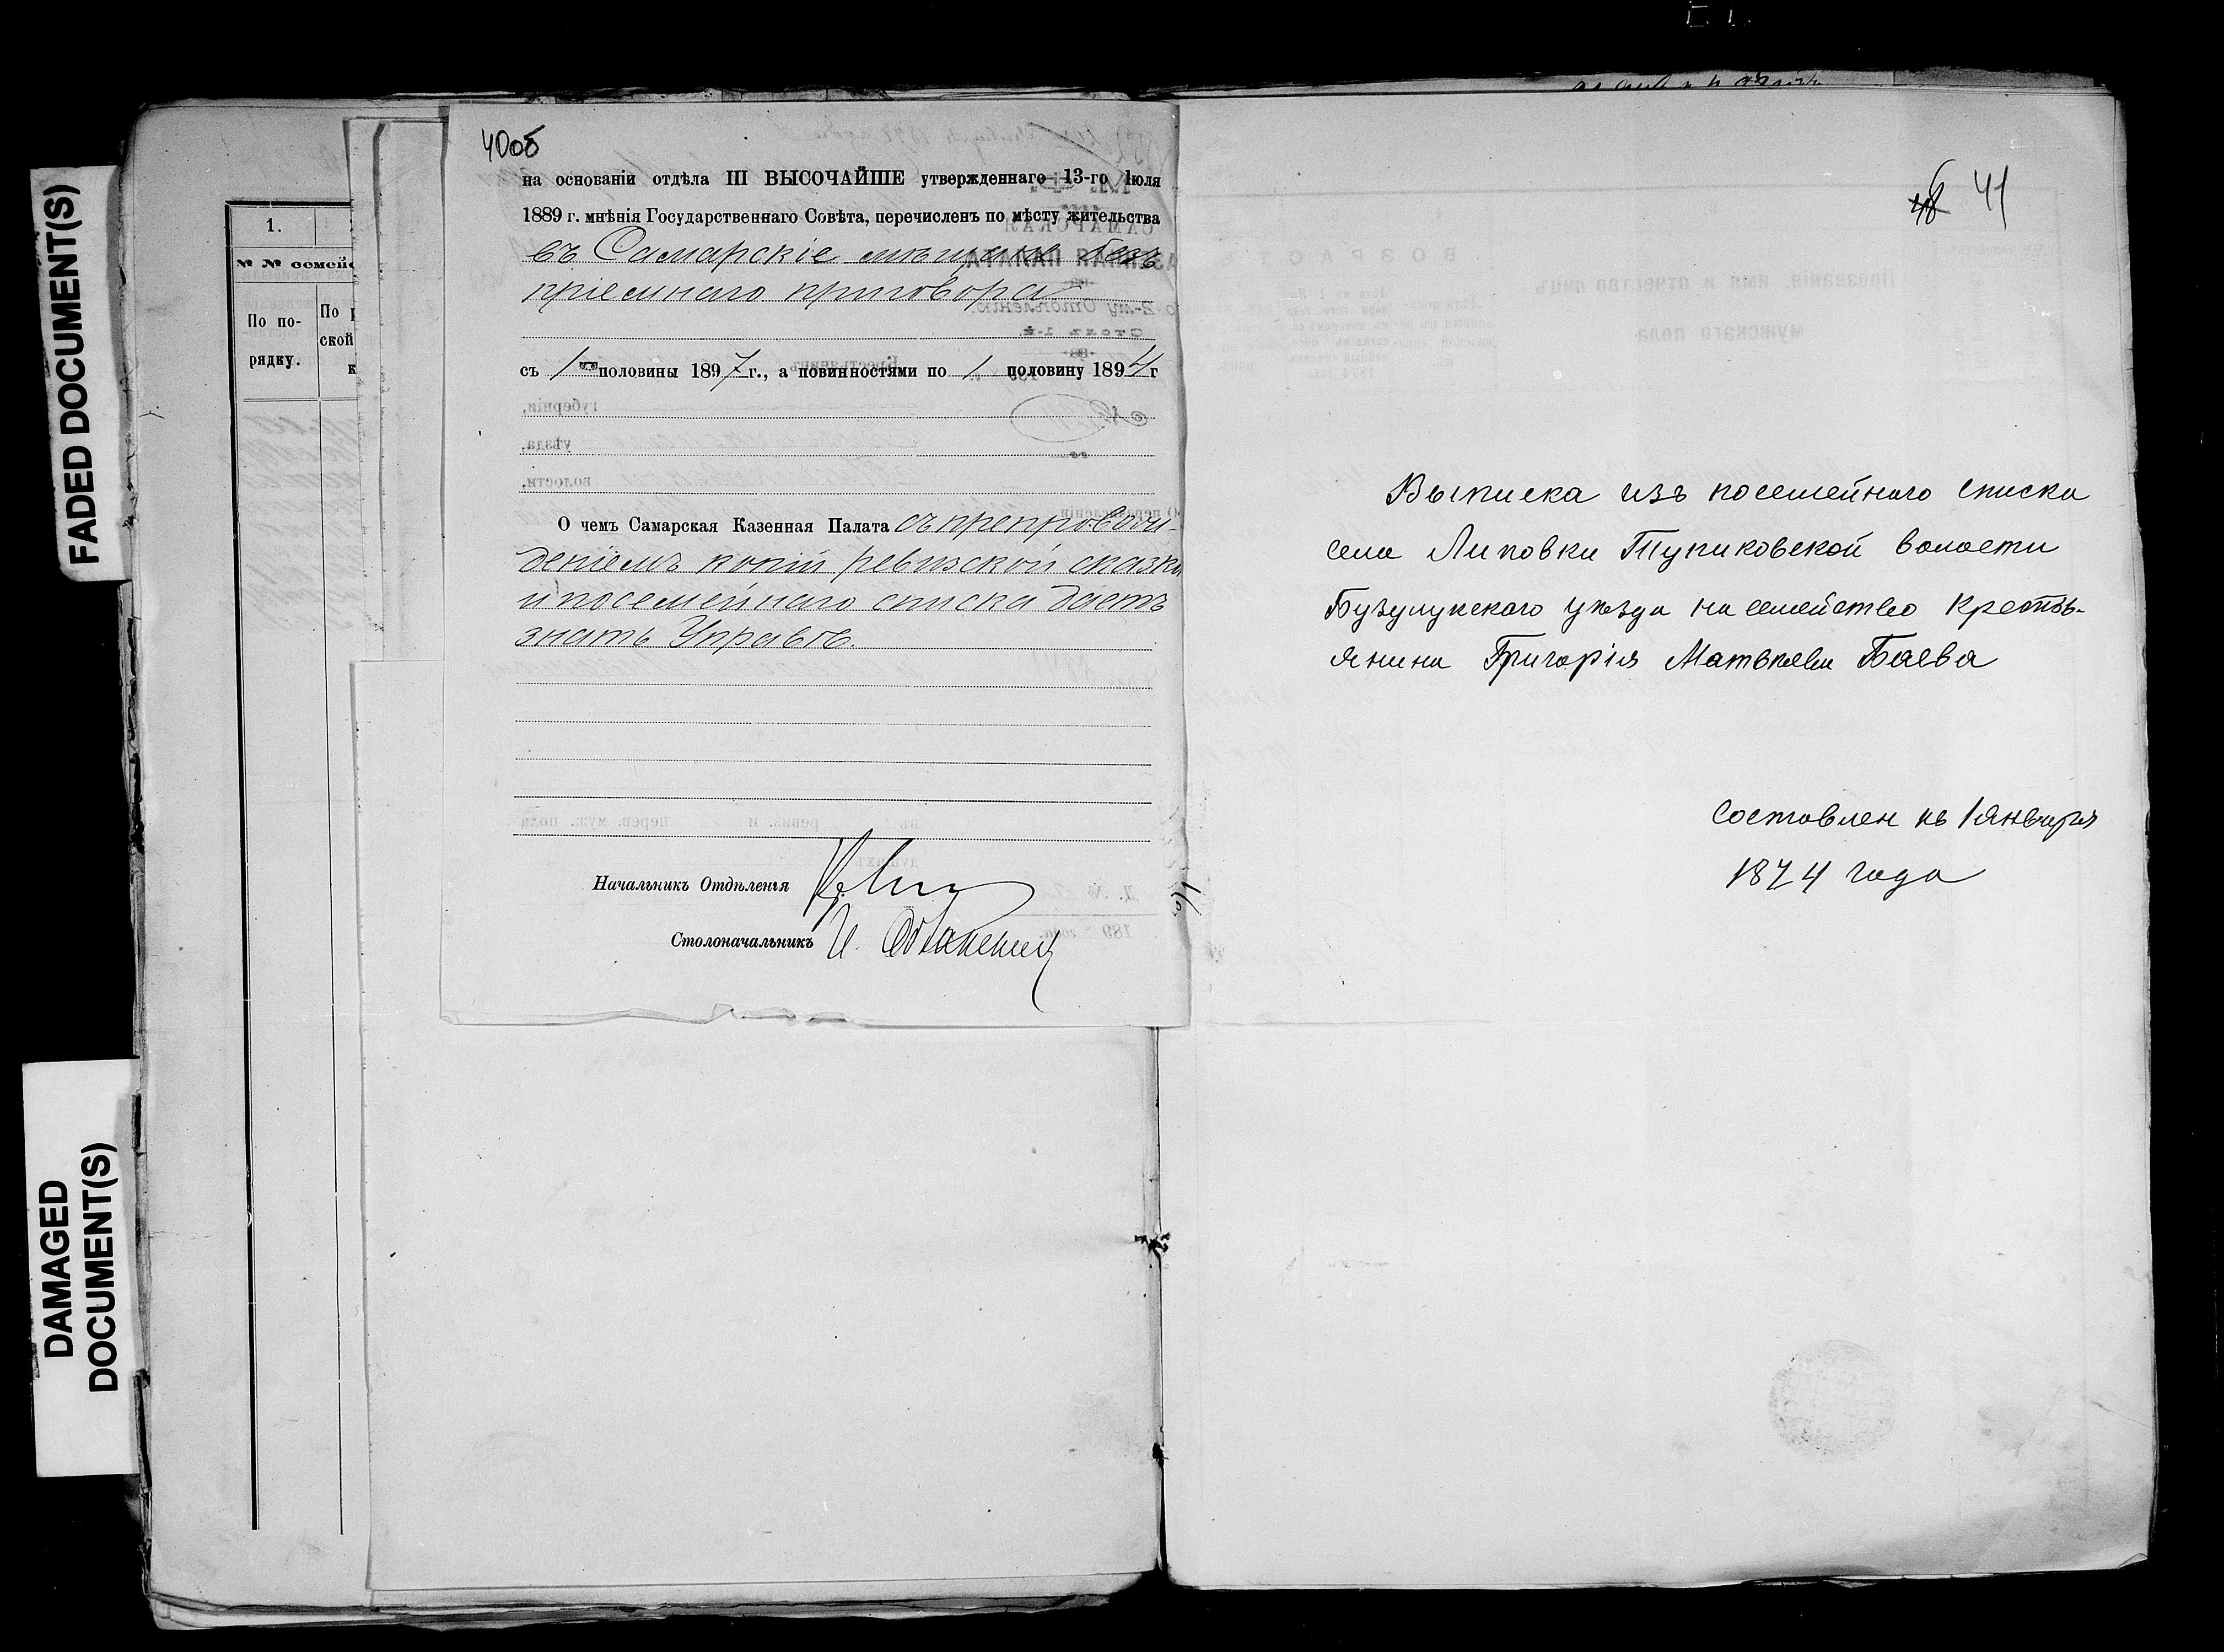 FADED DOCUMENT(S)
DAMAGED
DOCUMENT(S)
1.
№ № семей
По по-
рядку.
По р
ской
к
40об
на основаніи отдѣла III ВЫСОЧАЙШЕ утвержденнаго 13-го Іюля
1889 г. мнѣнія Государственнаго Совѣта, перечисленъ по мѣсту жительства
въ Самарскіе мѣщане безъ
пріемнаго приговора
съ 1 половины 1897 г., а повинностями по 1 половину 1894 г
О чемъ Самарская Казенная Палата съ препровож-
деніемъ копій ревизской сказки
и посемейнаго списка даетъ
знать Управѣ.
Начальникъ Отдѣленія
Столоначальникъ И.
41
Выписка изъ посемейного списка
села Липовки Тупиковской волости
Бузулукского уѣзда на семейство Кресть-
янина Григорія Матвѣева Баева
Составлен къ 1 Января
1874 года